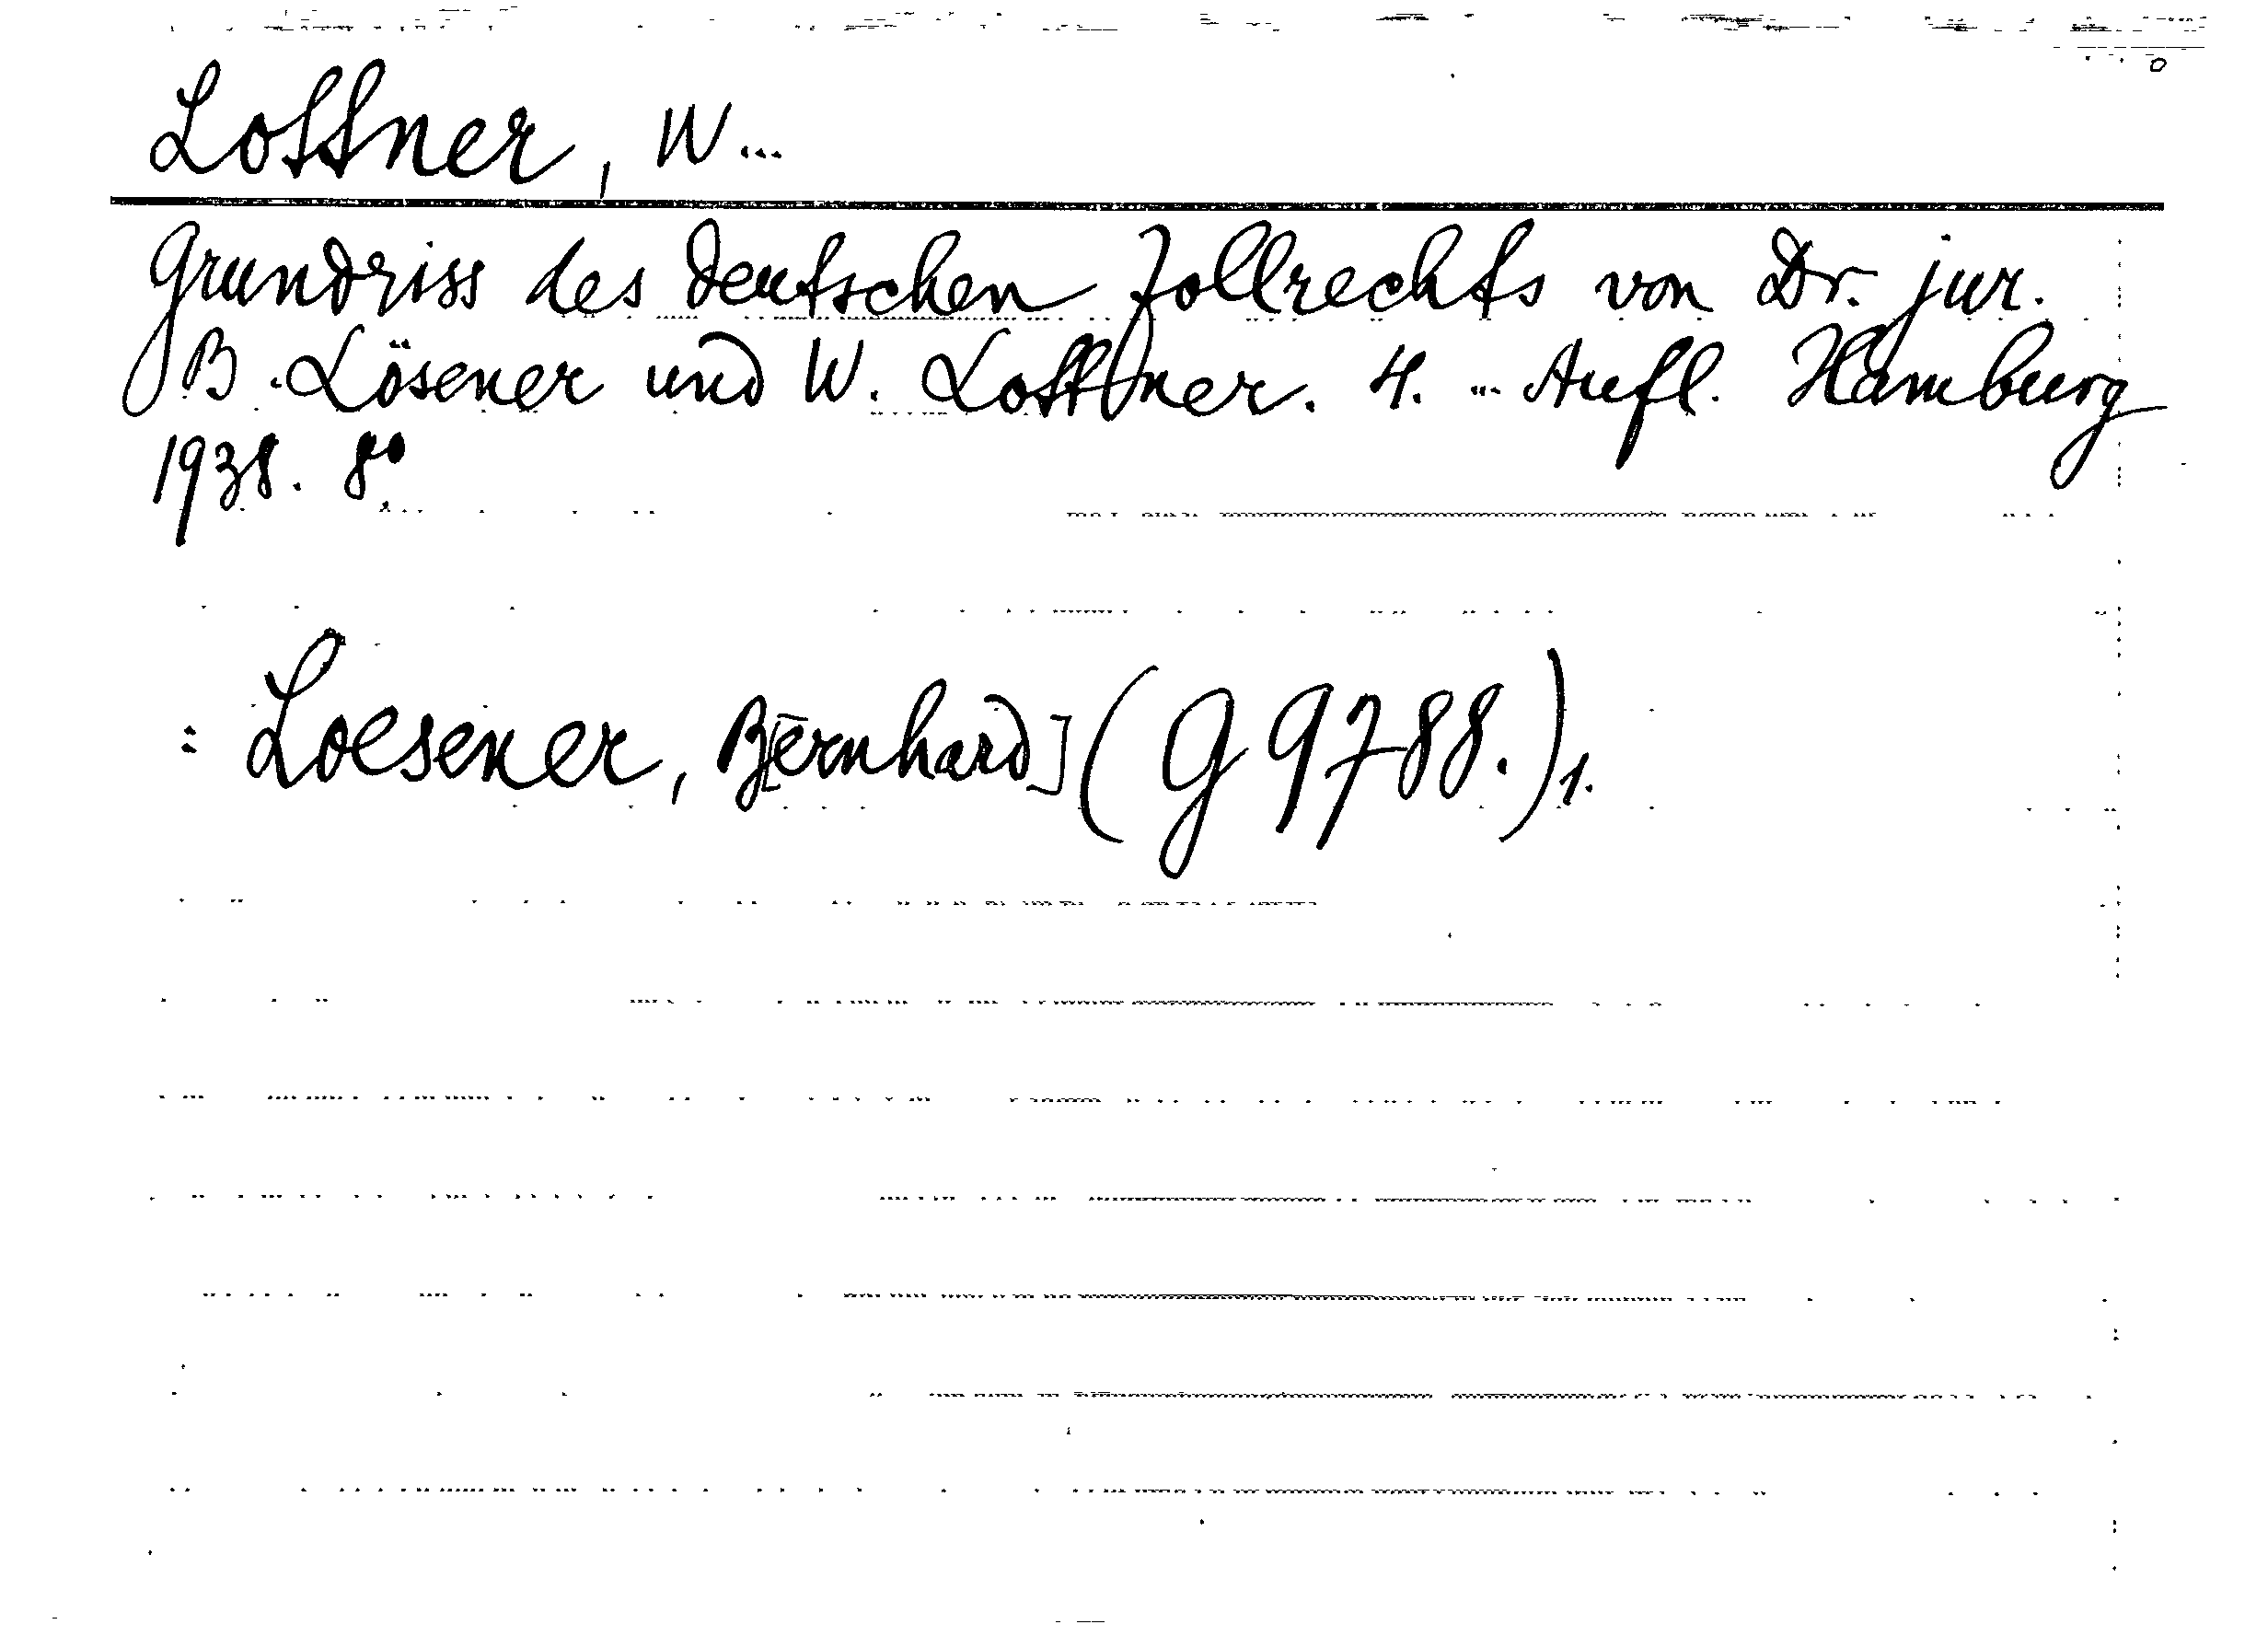 Lottner, W...
Grundriss des deutschen Zollrechts von Dr. jur.
B. Lösener und W. Lottner. 4. ... Aufl. Hamburg
1938. 8°
: Loesener, B[ernhard] (G 9788.) 1.